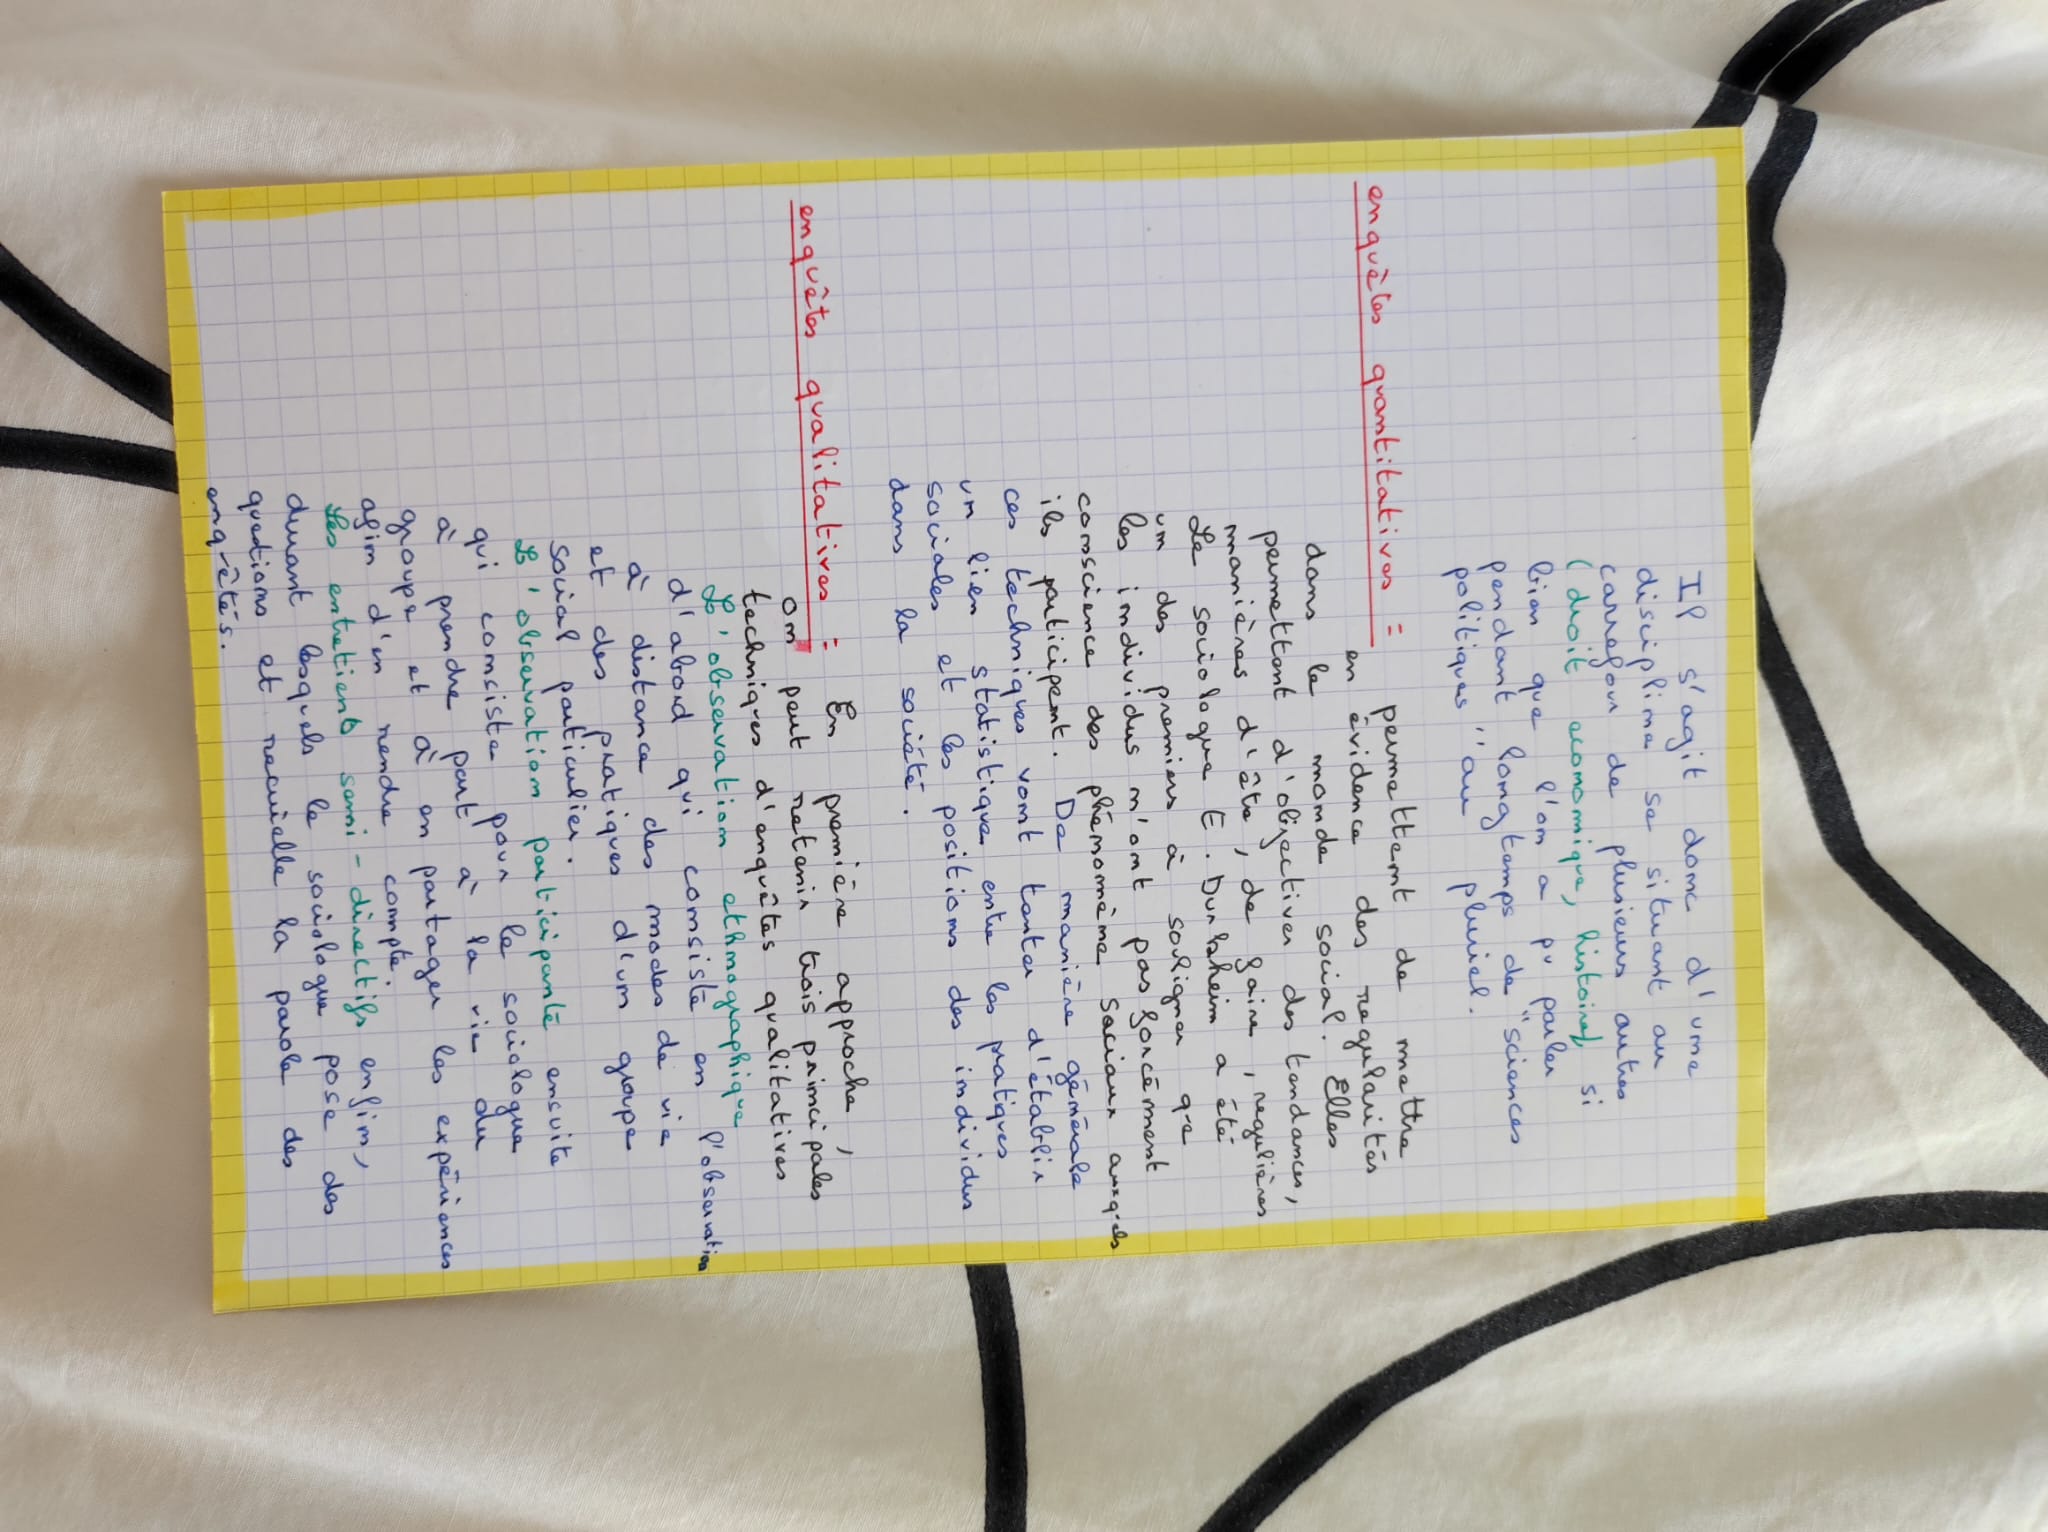 Il s'agit donc d'une
discipline se situant au
carrefour de plusieurs autres
(droit economique, histoire) si
bien que l'on a pu parler
pendant longtemps de "sciences
politiques" au pluriel.
enquètes quantitatives : permettent de mettre
en évidence des regularités
dans le monde social. Elles
permettent d'objectiver des tendances,
manières d'être, de faire, regulières
Le sociologue E. Durkheim a été
un des premiers à souligner que
les individus n'ont pas forcément
conscience des phénomène sociaux auxquels
ils participent. De manière générale
ces techniques vont tenter d'établir
un lien statistique entre les pratiques
sociales et les positions des individus
dans la société.
enquêtes qualitatives : En première approche,
on peut retenir trois principales
techniques d'enquêtes qualitatives
L'observation ethnographique
d'abord qui consiste en l'observation
à distance des modes de vie
et des pratiques d'un groupe
social particulier.
L'observation participante ensuite
qui consiste pour le sociologue
à prendre part à la vie du
groupe et à en partager les expériences
afin d'en rendre compte.
Les entretients semi-directifs enfin,
durant lesquels le sociologue pose des
questions et recueille la parole des
enquêtés.